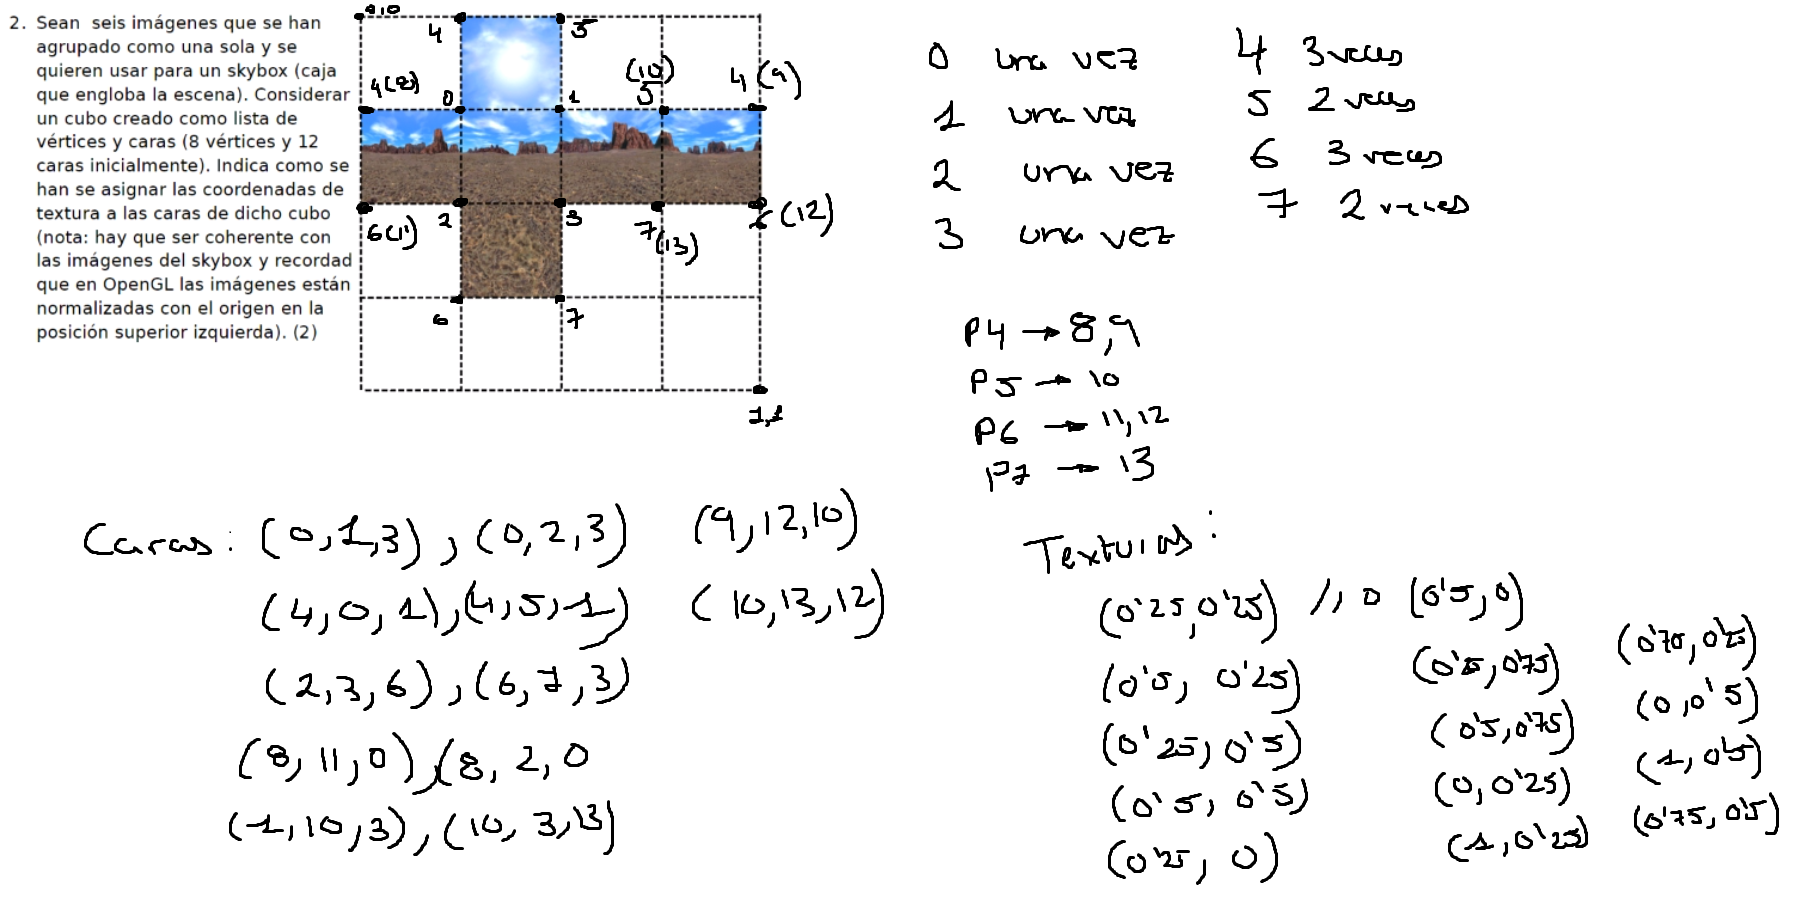 2. Sean seis imágenes que se han
agrupado como una sola y se
quieren usar para un skybox (caja
que engloba la escena). Considerar
un cubo creado como lista de
vértices y caras (8 vértices y 12
caras inicialmente). Indica como se
han se asignar las coordenadas de
textura a las caras de dicho cubo
(nota: hay que ser coherente con
las imágenes del skybox y recordad
que en OpenGL las imágenes están
normalizadas con el origen en la
posición superior izquierda). (2)
4 5
4(8) 0 1 (10) 5 4(9)
6(11) 2 3 7(13) 6(12)
6 7
1,1
0 una vez
1 una vez
2 una vez
3 una vez
4 3 veces
5 2 veces
6 3 veces
7 2 veces
P4 → 8,9
P5 → 10
P6 → 11,12
P7 → 13
Caras: (0,1,3), (0,2,3) (9,12,10)
(4,0,1),(4,5,1) (10,13,12)
(2,3,6), (6,7,3)
(8,11,0),(8,2,0
(1,10,3),(10,3,13)
Texturas:
(0'25,0'25) //0
(0'5, 0'25)
(0'25, 0'5)
(0'5, 0'5)
(0'25, 0)
(0'5,0)
(0'25,0'75)
(0'5,0'75)
(0,0'25)
(1,0'25)
(0'70,0'25)
(0,0'5)
(1,0'5)
(0'75,0'5)